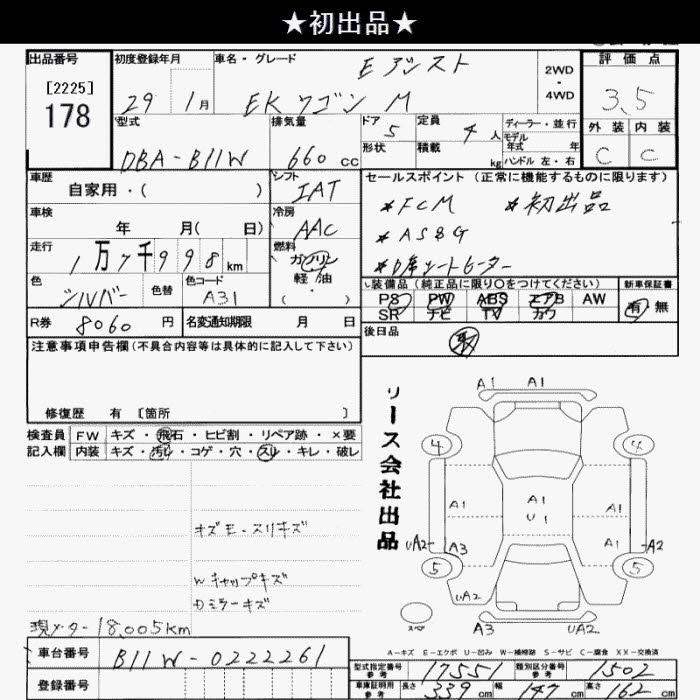 ★初出品★
出品番号
[2225]
178
初度登録年月
29 1月
車名・グレード
Eアシスト
EKワゴン M
2WD
・
4WD
評価点
3.5
外装 内装
C C
型式
DBA-B11W
排気量
660 cc
ドア 5
形状
定員 4 人
積載 kg
ディーラー・並行
モデル
年式 年
ハンドル 左・右
車歴
自家用・( )
シフト
IAT
セールスポイント (正常に機能するものに限ります)
*FCM *初出品
*AS&G
*D席シートヒーター
車検
年 月( 日)
冷房
AAC
走行
1万7千998km
燃料
ガソリン
軽油
( ・ )
色
シルバー
色替
色コード
A31
装備品 (純正品に限り○をつけてください)
PS PW ABS エアB AW
SR ナビ TV カワ
新車保証書
有 無
R券 8060 円
名変通知期限 月 日
後日品
注意事項申告欄 (不具合内容等は具体的に記入して下さい)
修復歴 有 [箇所 ]
検査員 FW キズ・飛石・ヒビ割・リペア跡・×要
記入欄 内装 キズ・汚れ・コゲ・穴・スレ・キレ・破レ
オズモ・スリキズ
Wキャップキズ
Dミラーキズ
現メーター 18,005km
リース会社出品
A1 A1
4 4
A1 A1 A1
U1
UA2 A3 A1 A2
5 5
UA2 UA2
スペア
A3 UA2
A-キズ E-エクボ U-凹み W-補修跡 S-サビ C-腐食 XX-交換済
車台番号 B11W-0222261
登録番号
型式指定番号 参考 17551 類別区分番号 参考 1502
車庫証明用 参考 長さ 339 cm 幅 147 cm 高さ 162 cm